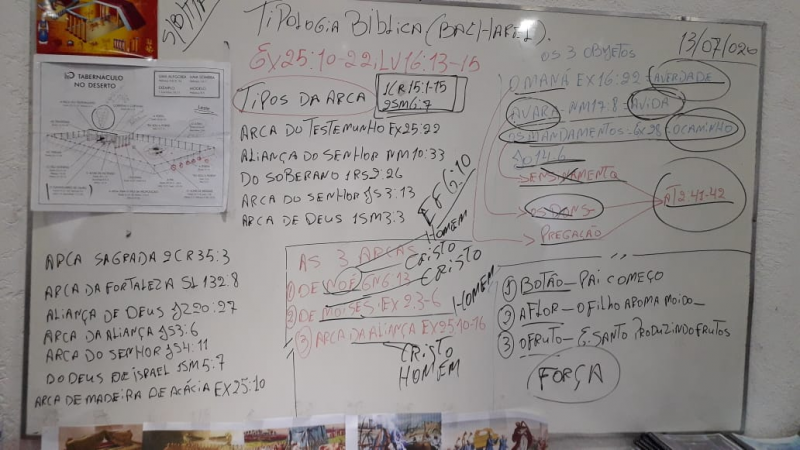 TIPOLOGIA BÍBLICA (BACHAREL).
13/07/020
EX25:10-22, LV16:13-15
TABERNÁCULO
NO DESERTO
TIPOS DA ARCA
1CR15:1-15
2SM6:7
ARCA DO TESTEMUNHO EX25:22
ALIANÇA DO SENHOR NM10:33
DO SOBERANO 1RS2:26
ARCA DO SENHOR JS3:13
ARCA DE DEUS 1SM3:3
ARCA SAGRADA 2CR35:3
ARCA DA FORTALEZA SL132:8
ALIANÇA DE DEUS JZ20:27
ARCA DA ALIANÇA JS3:6
ARCA DO SENHOR JS4:11
DO DEUS DE ISRAEL 1SM5:7
ARCA DE MADEIRA DE ACÁCIA EX25:10
AS 3 ARCAS
1) DE NOÉ GN6:13
2) DE MOISÉS: EX2:3-6
3) ARCA DA ALIANÇA EX25:10-16
EF6:10
HOMEM
CRISTO
CRISTO
HOMEM
CRISTO
HOMEM
OS 3 OBJETOS
O MANÁ EX16:22 - A VERDADE
A VARA - NM17:8 - A VIDA
OS MANDAMENTOS - O CAMINHO
JO14:6
ENSINAMENTO
OS DONS
PREGAÇÃO
AT2:41-42
1) BOTÃO - PAI COMEÇO
2) A FLOR - O FILHO AROMA MOIDO -
3) O FRUTO - E. SANTO PRODUZINDO FRUTOS
FORÇA